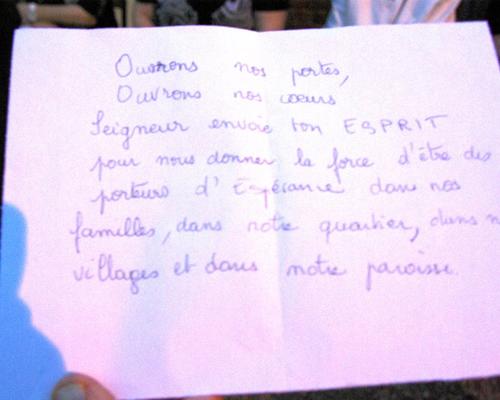 Ouvrons nos portes,
Ouvrons nos cœurs
Seigneur envoie ton ESPRIT
pour nous donner la force d'être des
porteurs d'Espérance dans nos
familles, dans notre quartier, dans n
villages et dans notre paroisse.